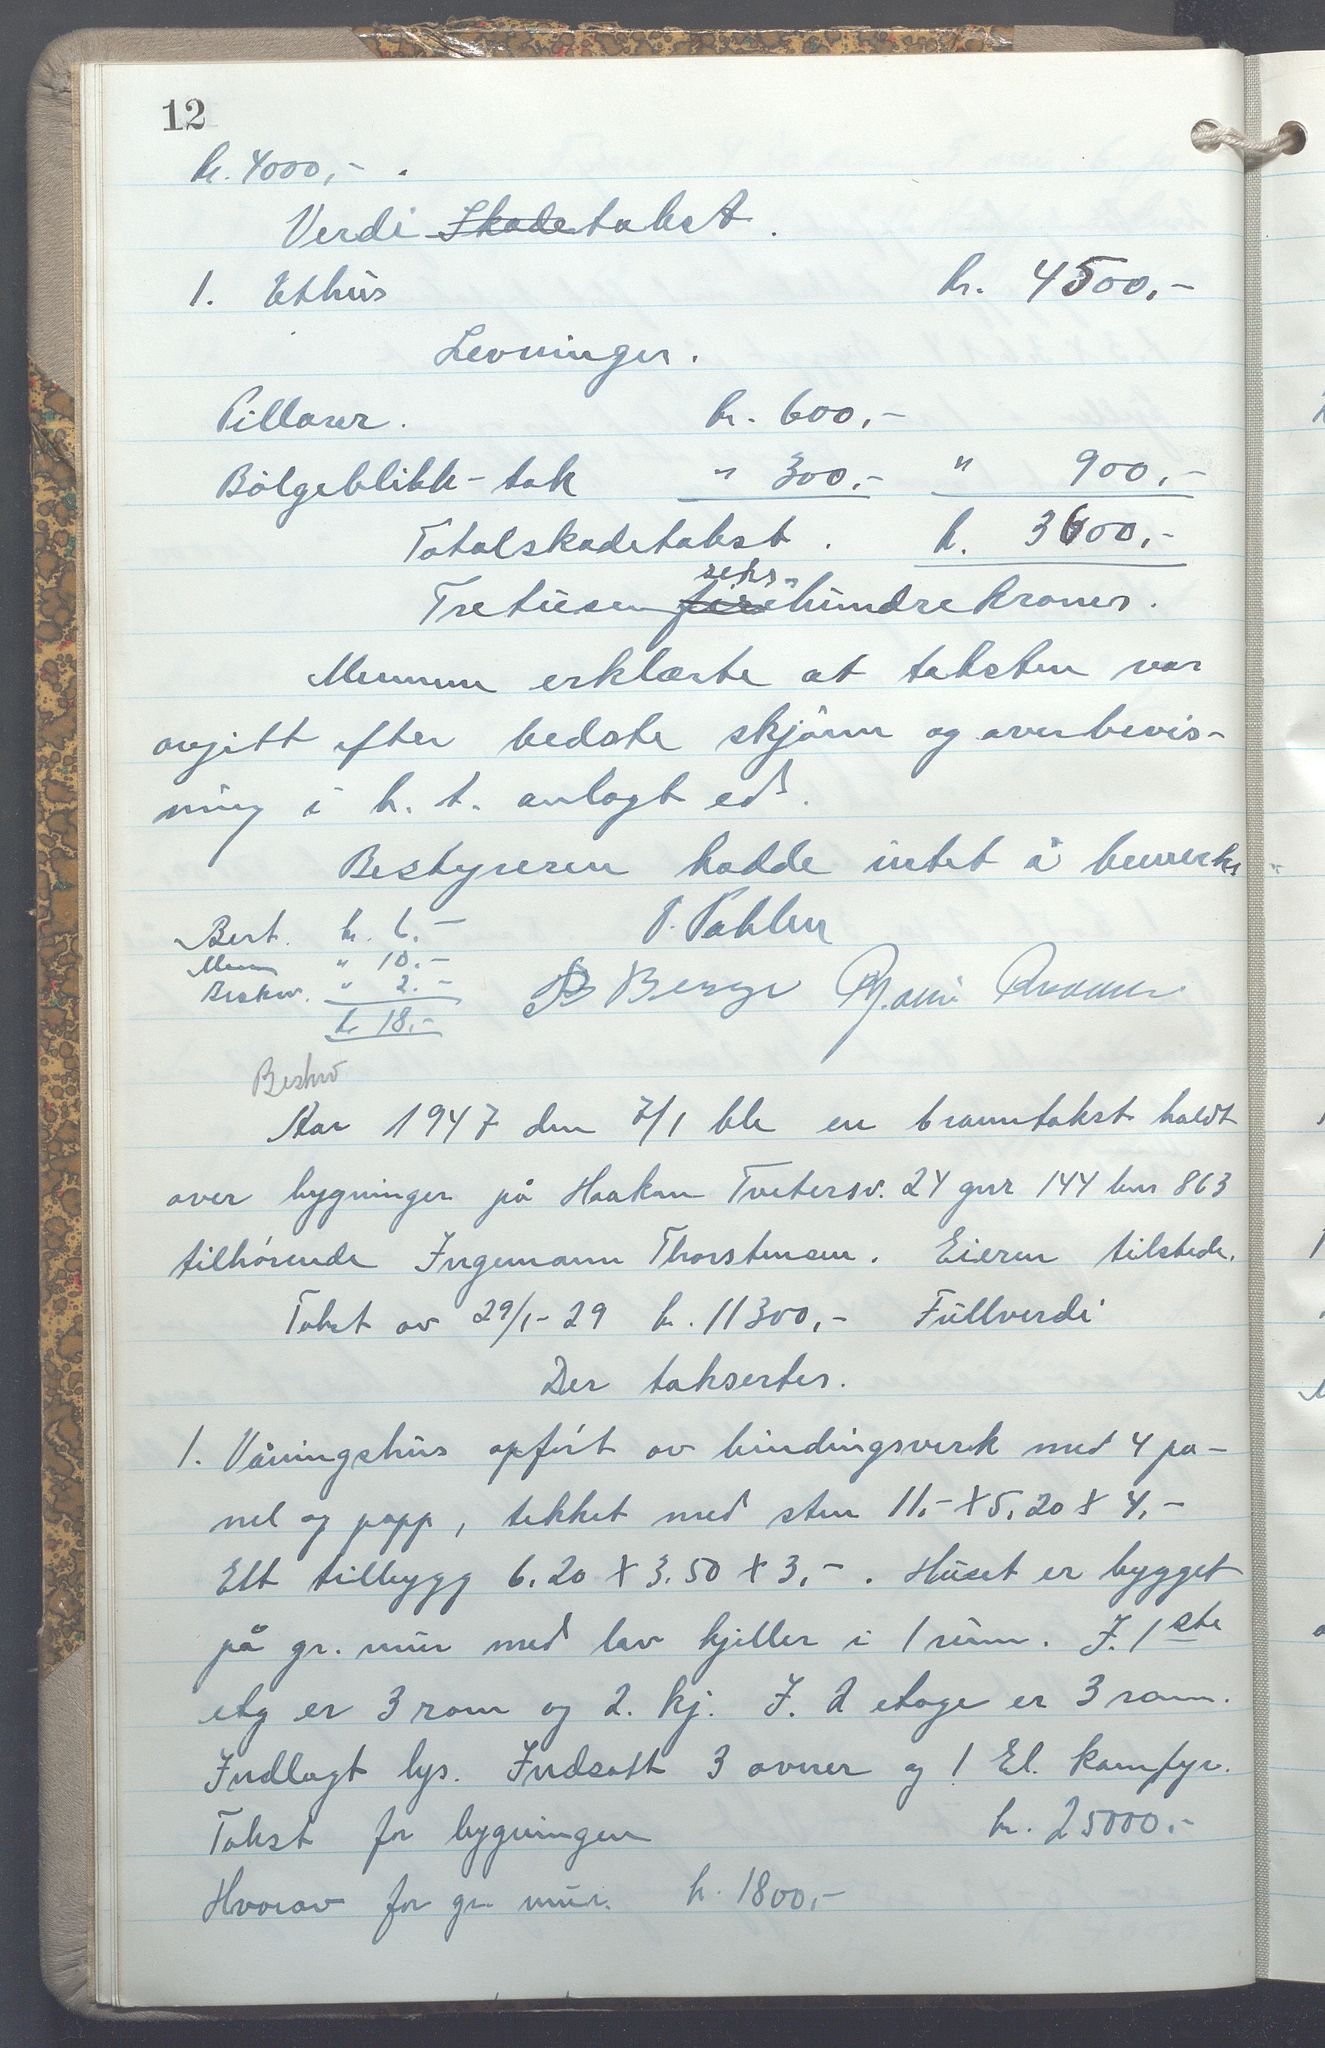 12
kr. 4000,-
Verdi Skadetakst.
1. Uthus kr. 4500,-
Levninger.
Pillarer. kr. 600,-
Bølgeblikk-tak " 300,- " 900,-
Totalskadetakst. k. 3600,-
seks
Tretusen firehundrekroner.
Mennene erklærte at taksten var
avgitt efter bedste skjønn og overbevis-
ning i h. t. avlagt ed.
Bestyreren hadde intet å bemerke
Best. kr. 6.- P. Pahlen
Menn " 10.-
Beskriv. " 2.- Berge
kr 18.-
Beskriv
Aar 1947 den 7/1 ble en branntakst holdt
over bygninger på Haakon Tvetersv. 24 gnr 144 bnr 863
tilhørende Ingemann Thorstensen. Eieren tilstede.
Takst av 29/1-29 kr. 11300,- Fullverdi
Der taksertes.
1. Våningshus opført av bindingsverk med 4 pa-
nel og papp, tekket med sten 11,- x 5,20 x 4,-
Ett tilbygg 6.20 x 3.50 x 3,-. Huset er bygget
på gr. mur med lav kjeller i 1 rum. I. 1ste
etg er 3 rom og 2. kj. I. 2 etage er 3 rom.
Indlagt lys. Indsatt 3 ovner og 1 El. komfyr.
Takst for bygningen kr. 25000.-
Hvorav for gr. mur. kr. 1800,-